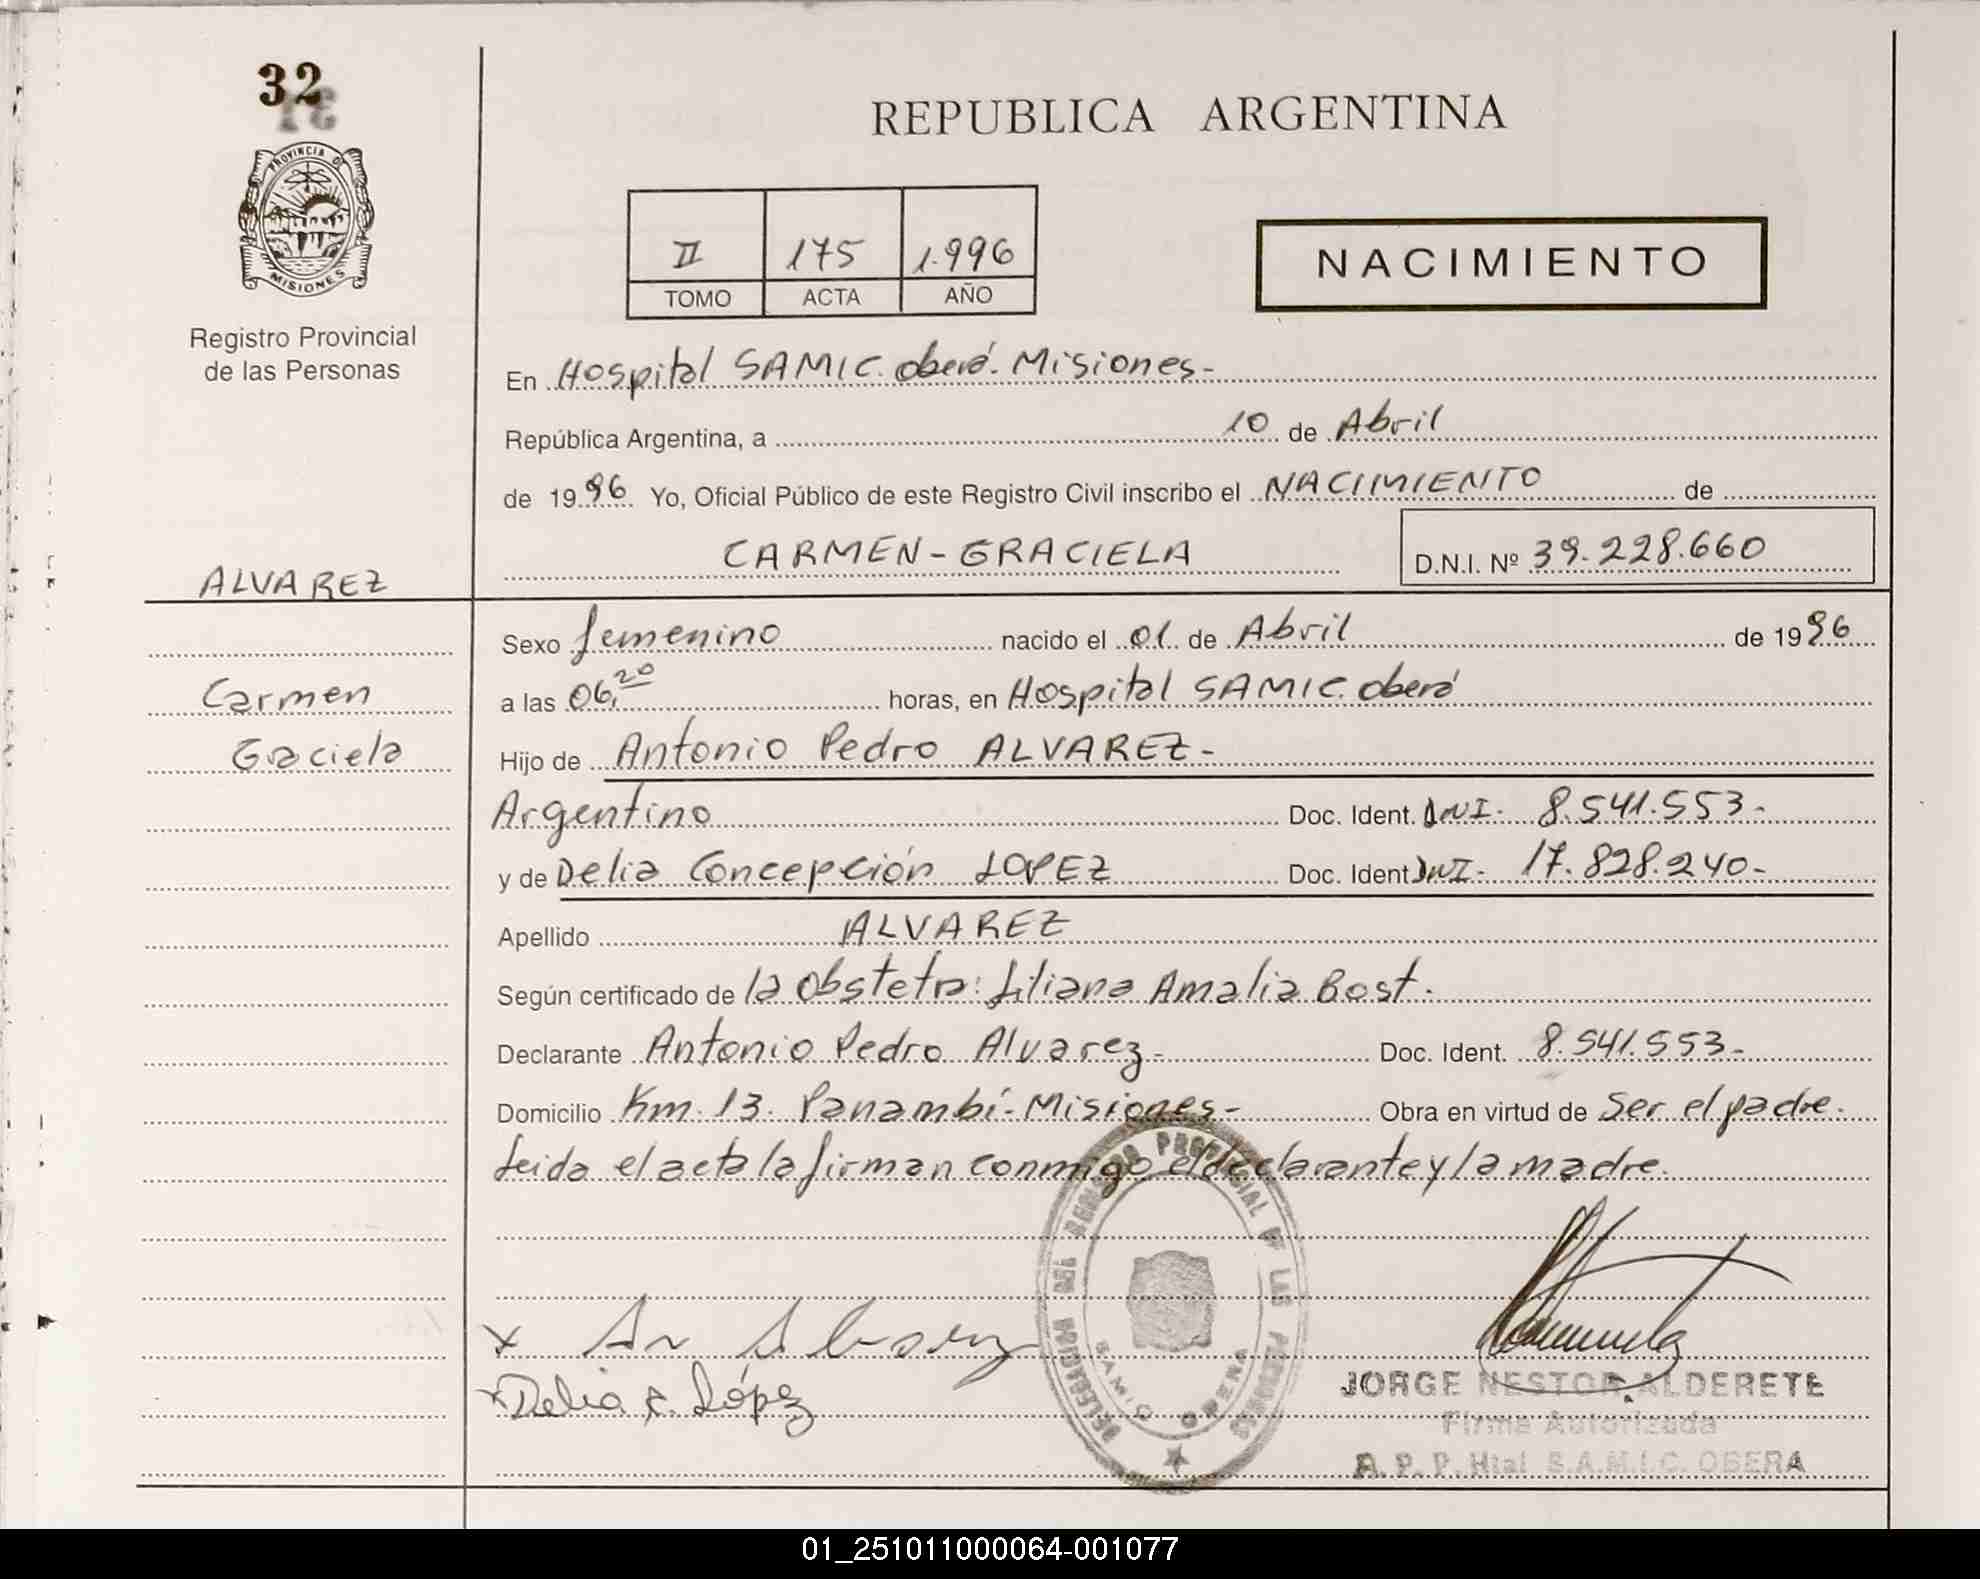 32
PROVINCIA DE
MISIONES
Registro Provincial
de las Personas
REPUBLICA ARGENTINA
II 175 1.996
TOMO ACTA AÑO
NACIMIENTO
En Hospital SAMIC. Oberá. Misiones-
República Argentina, a 10 de Abril
de 1996 Yo, Oficial Público de este Registro Civil inscribo el NACIMIENTO de
CARMEN-GRACIELA D.N.I. Nº 39.228.660
ALVAREZ
Carmen
Graciela
Sexo femenino nacido el 01 de Abril de 1996
a las 06,20 horas, en Hospital SAMIC. Oberá
Hijo de Antonio Pedro ALVAREZ-
Argentino Doc. Ident. DNI- 8.541.553-
y de Delia Concepción LOPEZ Doc. Ident DNI- 17.828.240-
Apellido ALVAREZ
Según certificado de la Obstetra: Liliana Amalia Bost.
Declarante Antonio Pedro Alvarez- Doc. Ident. 8.541.553-
Domicilio Km. 13. Panambí-Misiones- Obra en virtud de Ser el padre.
Leida el acta la firman conmigo el declarante y la madre.
DELEGACION DEL REGISTRO PROVINCIAL DE LAS PERSONAS
SAMIC OBERA
x Delia C. López
JORGE NESTOR ALDERETE
Firma Autorizada
R. P. P. Htal S.A.M.I.C. OBERA
01_251011000064-001077